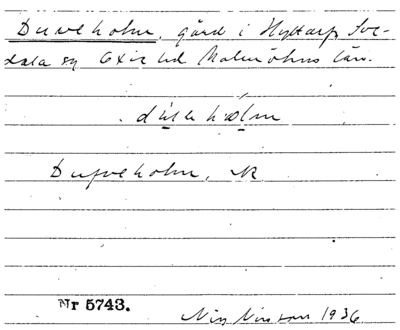 Duveholm, gård i Hyltarp, Sve-
dala sn Oxie hd Malmöhus län.
Dufveholm, JR
Nr 5743.
Nils Nilsson 1936